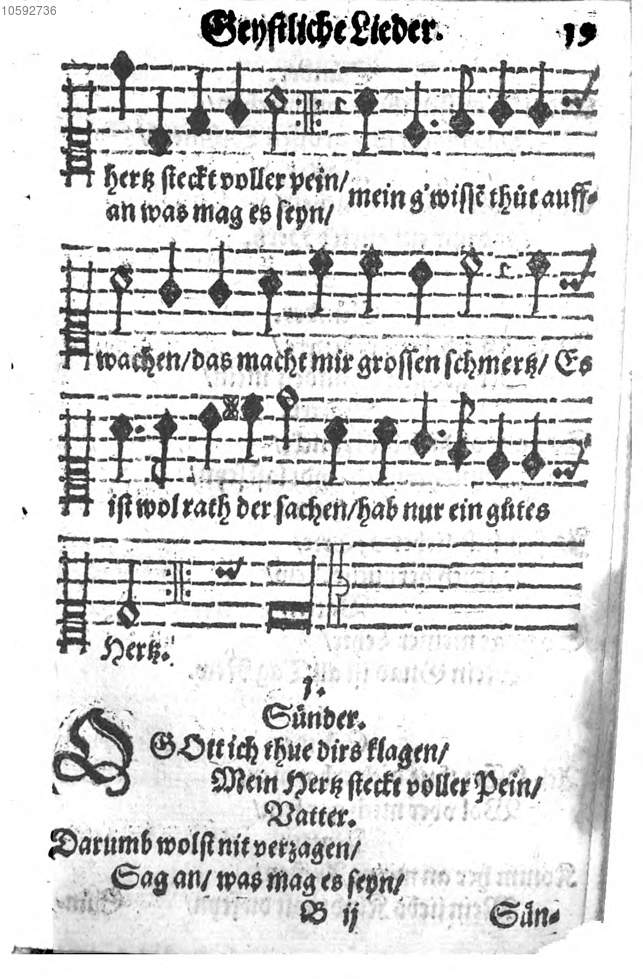 10592736
Geystliche Lieder. 19
hertz steckt voller pein/
an was mag es seyn/
mein g'wissē thůt auff-
wachen/das macht mir grossen schmertz/ Es
ist wol rath der sachen/hab nur ein gůtes
Hertz.
1.
Sünder.
O GOtt ich thue dirs klagen/
Mein Hertz steckt voller Pein/
Vatter.
Darumb wolst nit verzagen/
Sag an/ was mag es seyn/
B ij Sün-